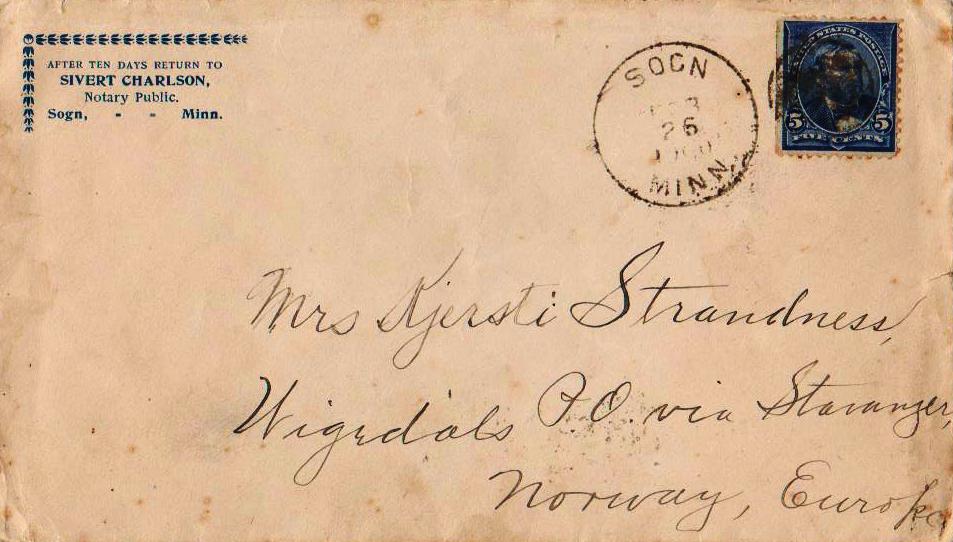 AFTER TEN DAYS RETURN TO
SIVERT CHARLSON,
Notary Public.
Sogn, - - Minn.
SOGN
26
MINN.
UNITED STATES POSTAGE
5 5
FIVE CENTS
Mrs Kjersti Strandness,
Wigedals P.O. via Stavanger,
Norway, Europe